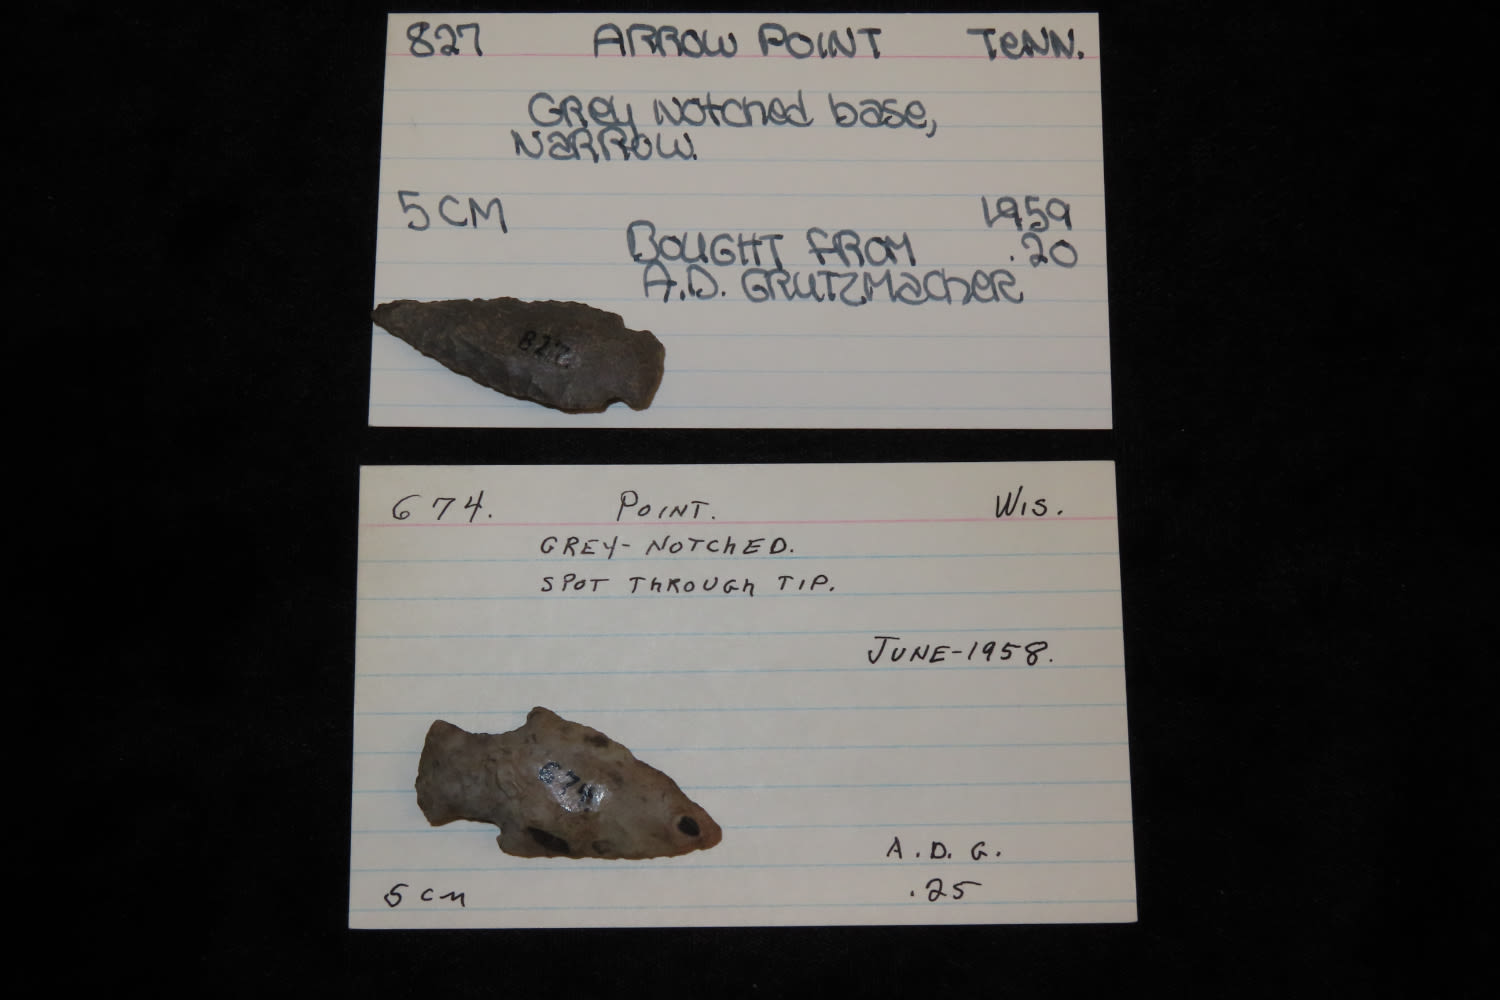 827 ARROW POINT TeNN.
GRey Notched base,
NaRROW.
5 CM 1959
BOUGHT FROM .20
A.D. GRUTZMacheR
827
674. POINT. WIS.
GREY- NOTChED.
SPOT ThROUGh TIP.
JUNE-1958.
674
A.D.G.
5 cm .25